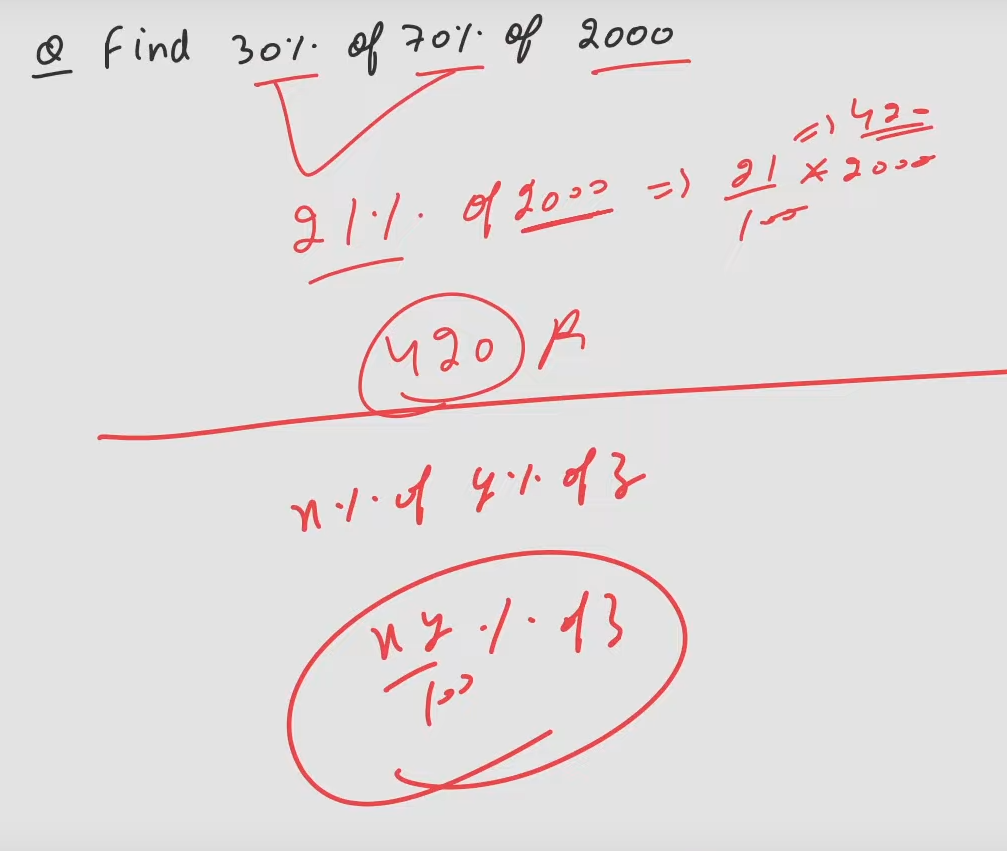 Q Find 30% of 70% of 2000
=> 420
21% of 2000 => 21/100 * 2000
420 A
x% of y% of z
xy/100 % of z